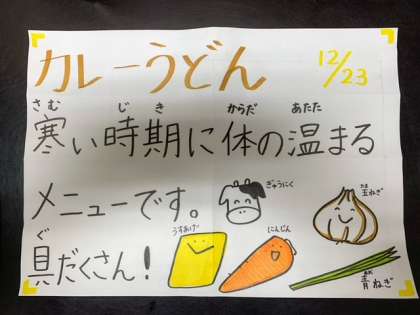 カレーうどん
12/23
さむ じき からだ あたた
寒い時期に体の温まる
メニューです。
ぐ
具だくさん!
ぎゅうにく
うすあげ
にんじん
たま
玉ねぎ
青ねぎ